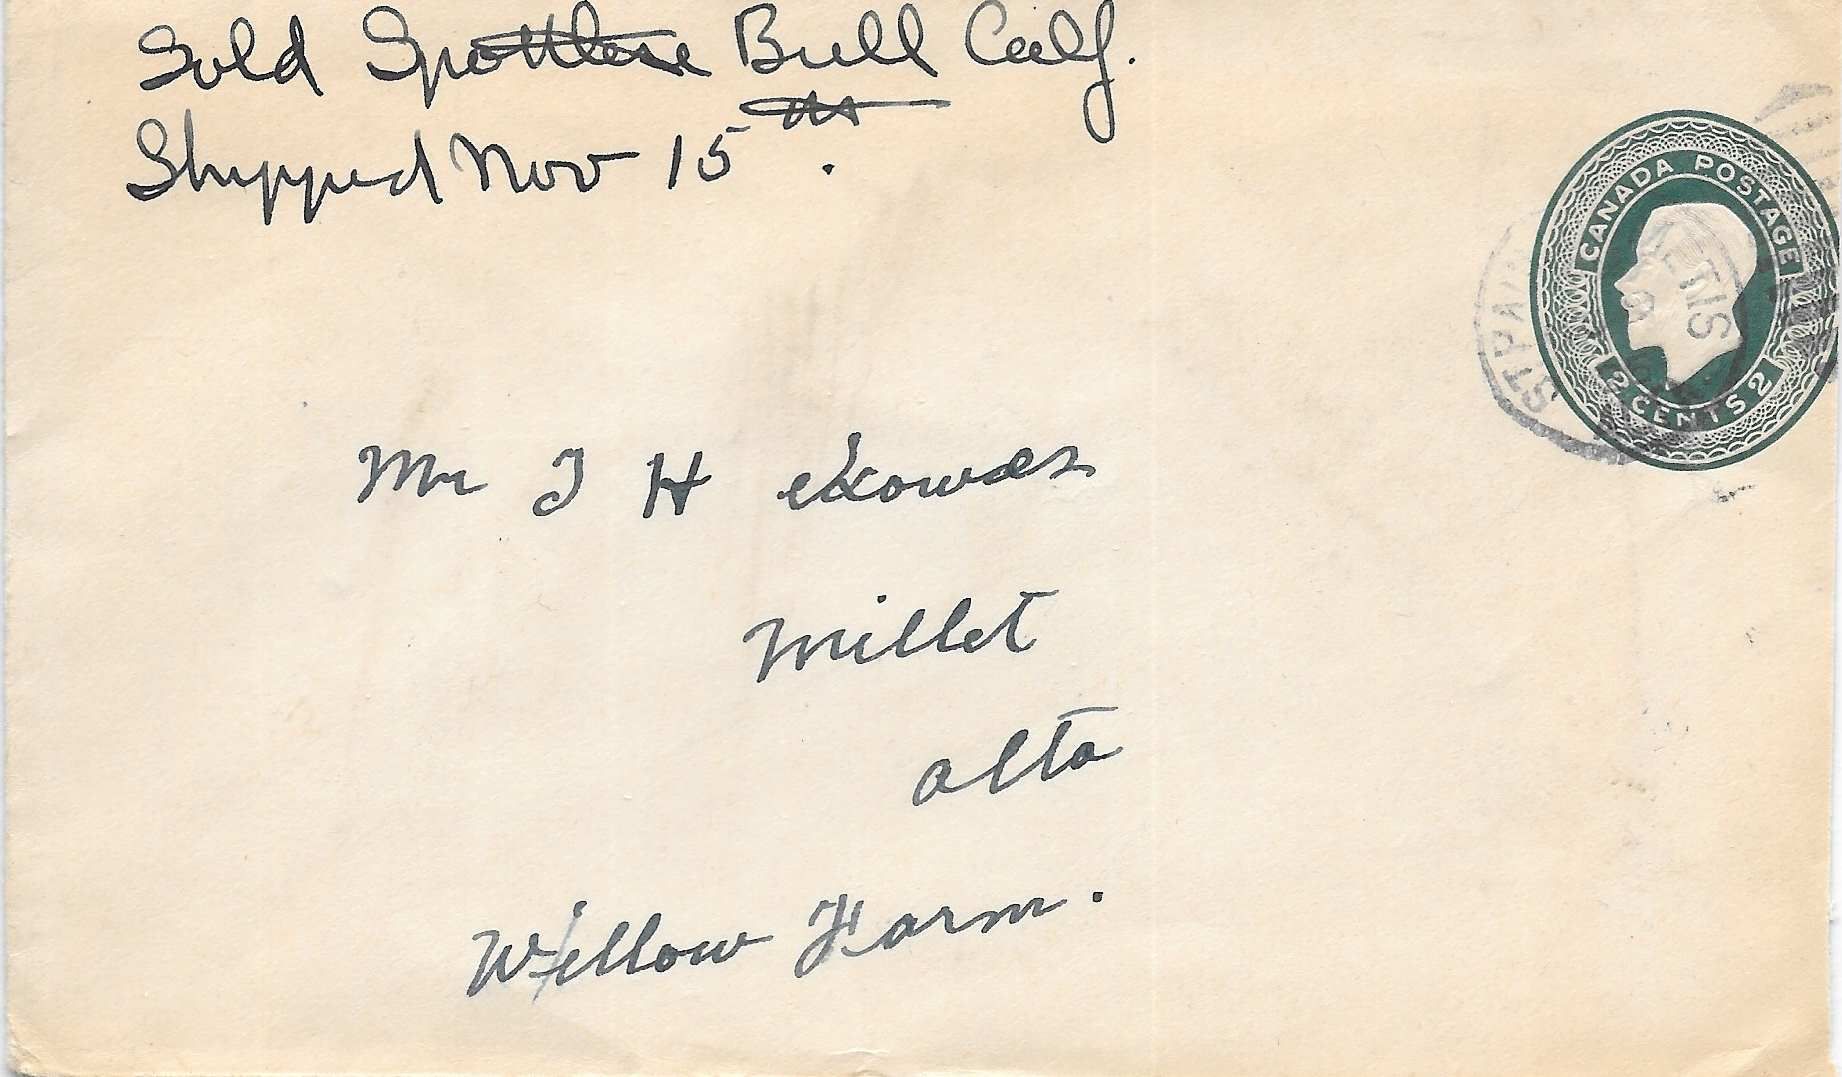 Sold Spottless Bull Calf.
Shipped Nov 15th.
CANADA POSTAGE
2 CENTS 2
ST PAUL
METIS
Mr J H
Millet
Alta
Willow Farm.